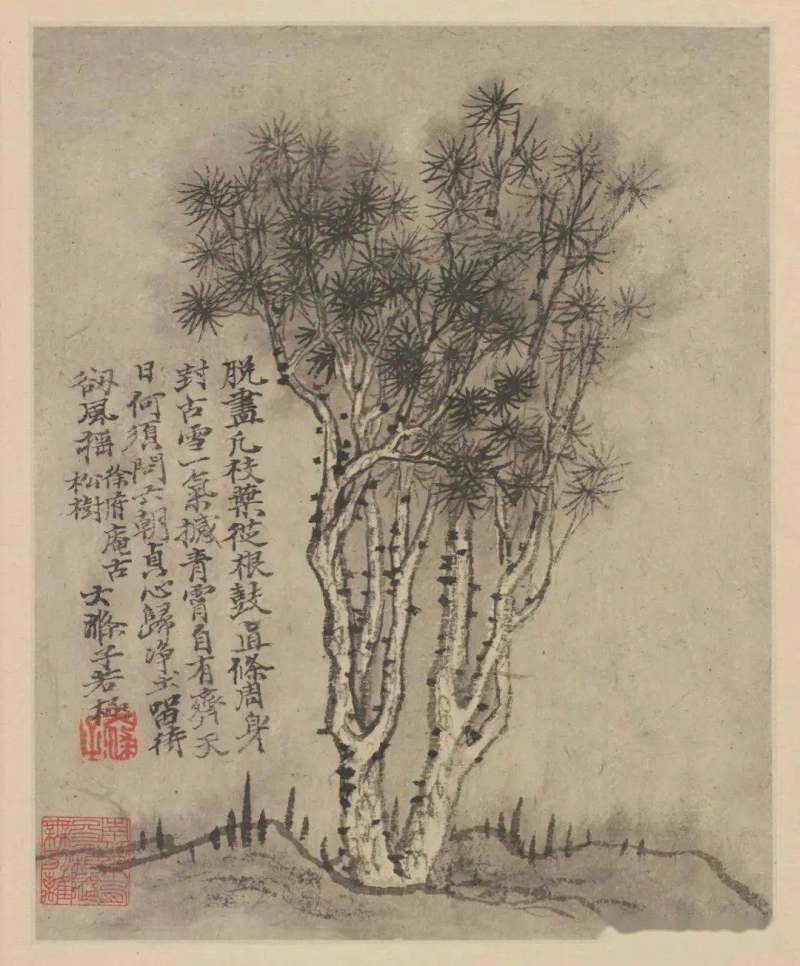 脱盡凡枝葉從根鼓直條周身
封古雪一氣撼青霄自有齊天
日何須問六朝貞心歸净土留待
刼風摇
徐府庵古
松樹
大滌子若極